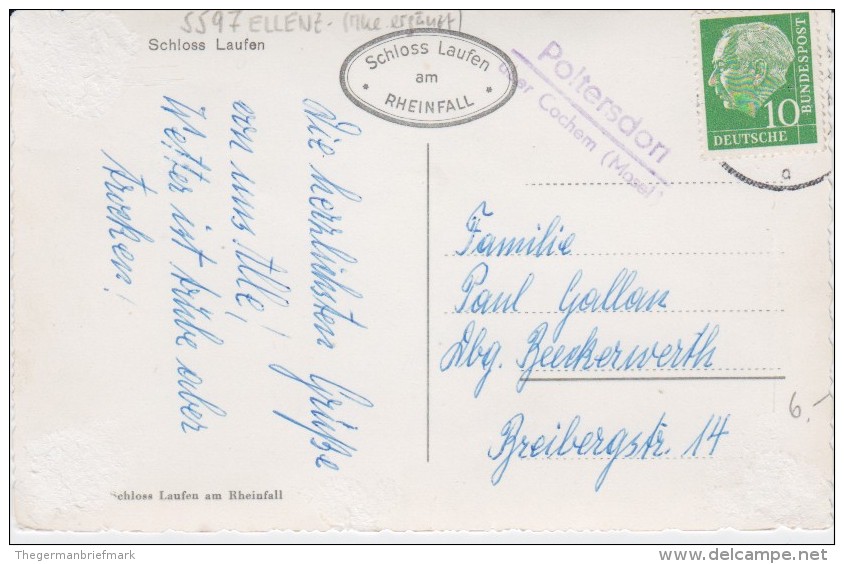 5597 ELLENZ - (Mke. ergänzt)
Schloss Laufen
Schloss Laufen
am
RHEINFALL
Poltersdorf
über Cochem (Mosel)
10
DEUTSCHE
BUNDESPOST
a
die herzlichsten Grüße
von uns Alle,
Wetter ist trübe aber
trocken!
Familie
Paul Gallan
Dbg. Beeckerwerth
Breibergstr. 14
6,-
Schloss Laufen am Rheinfall
Thegermanbriefmark
delcampe.net